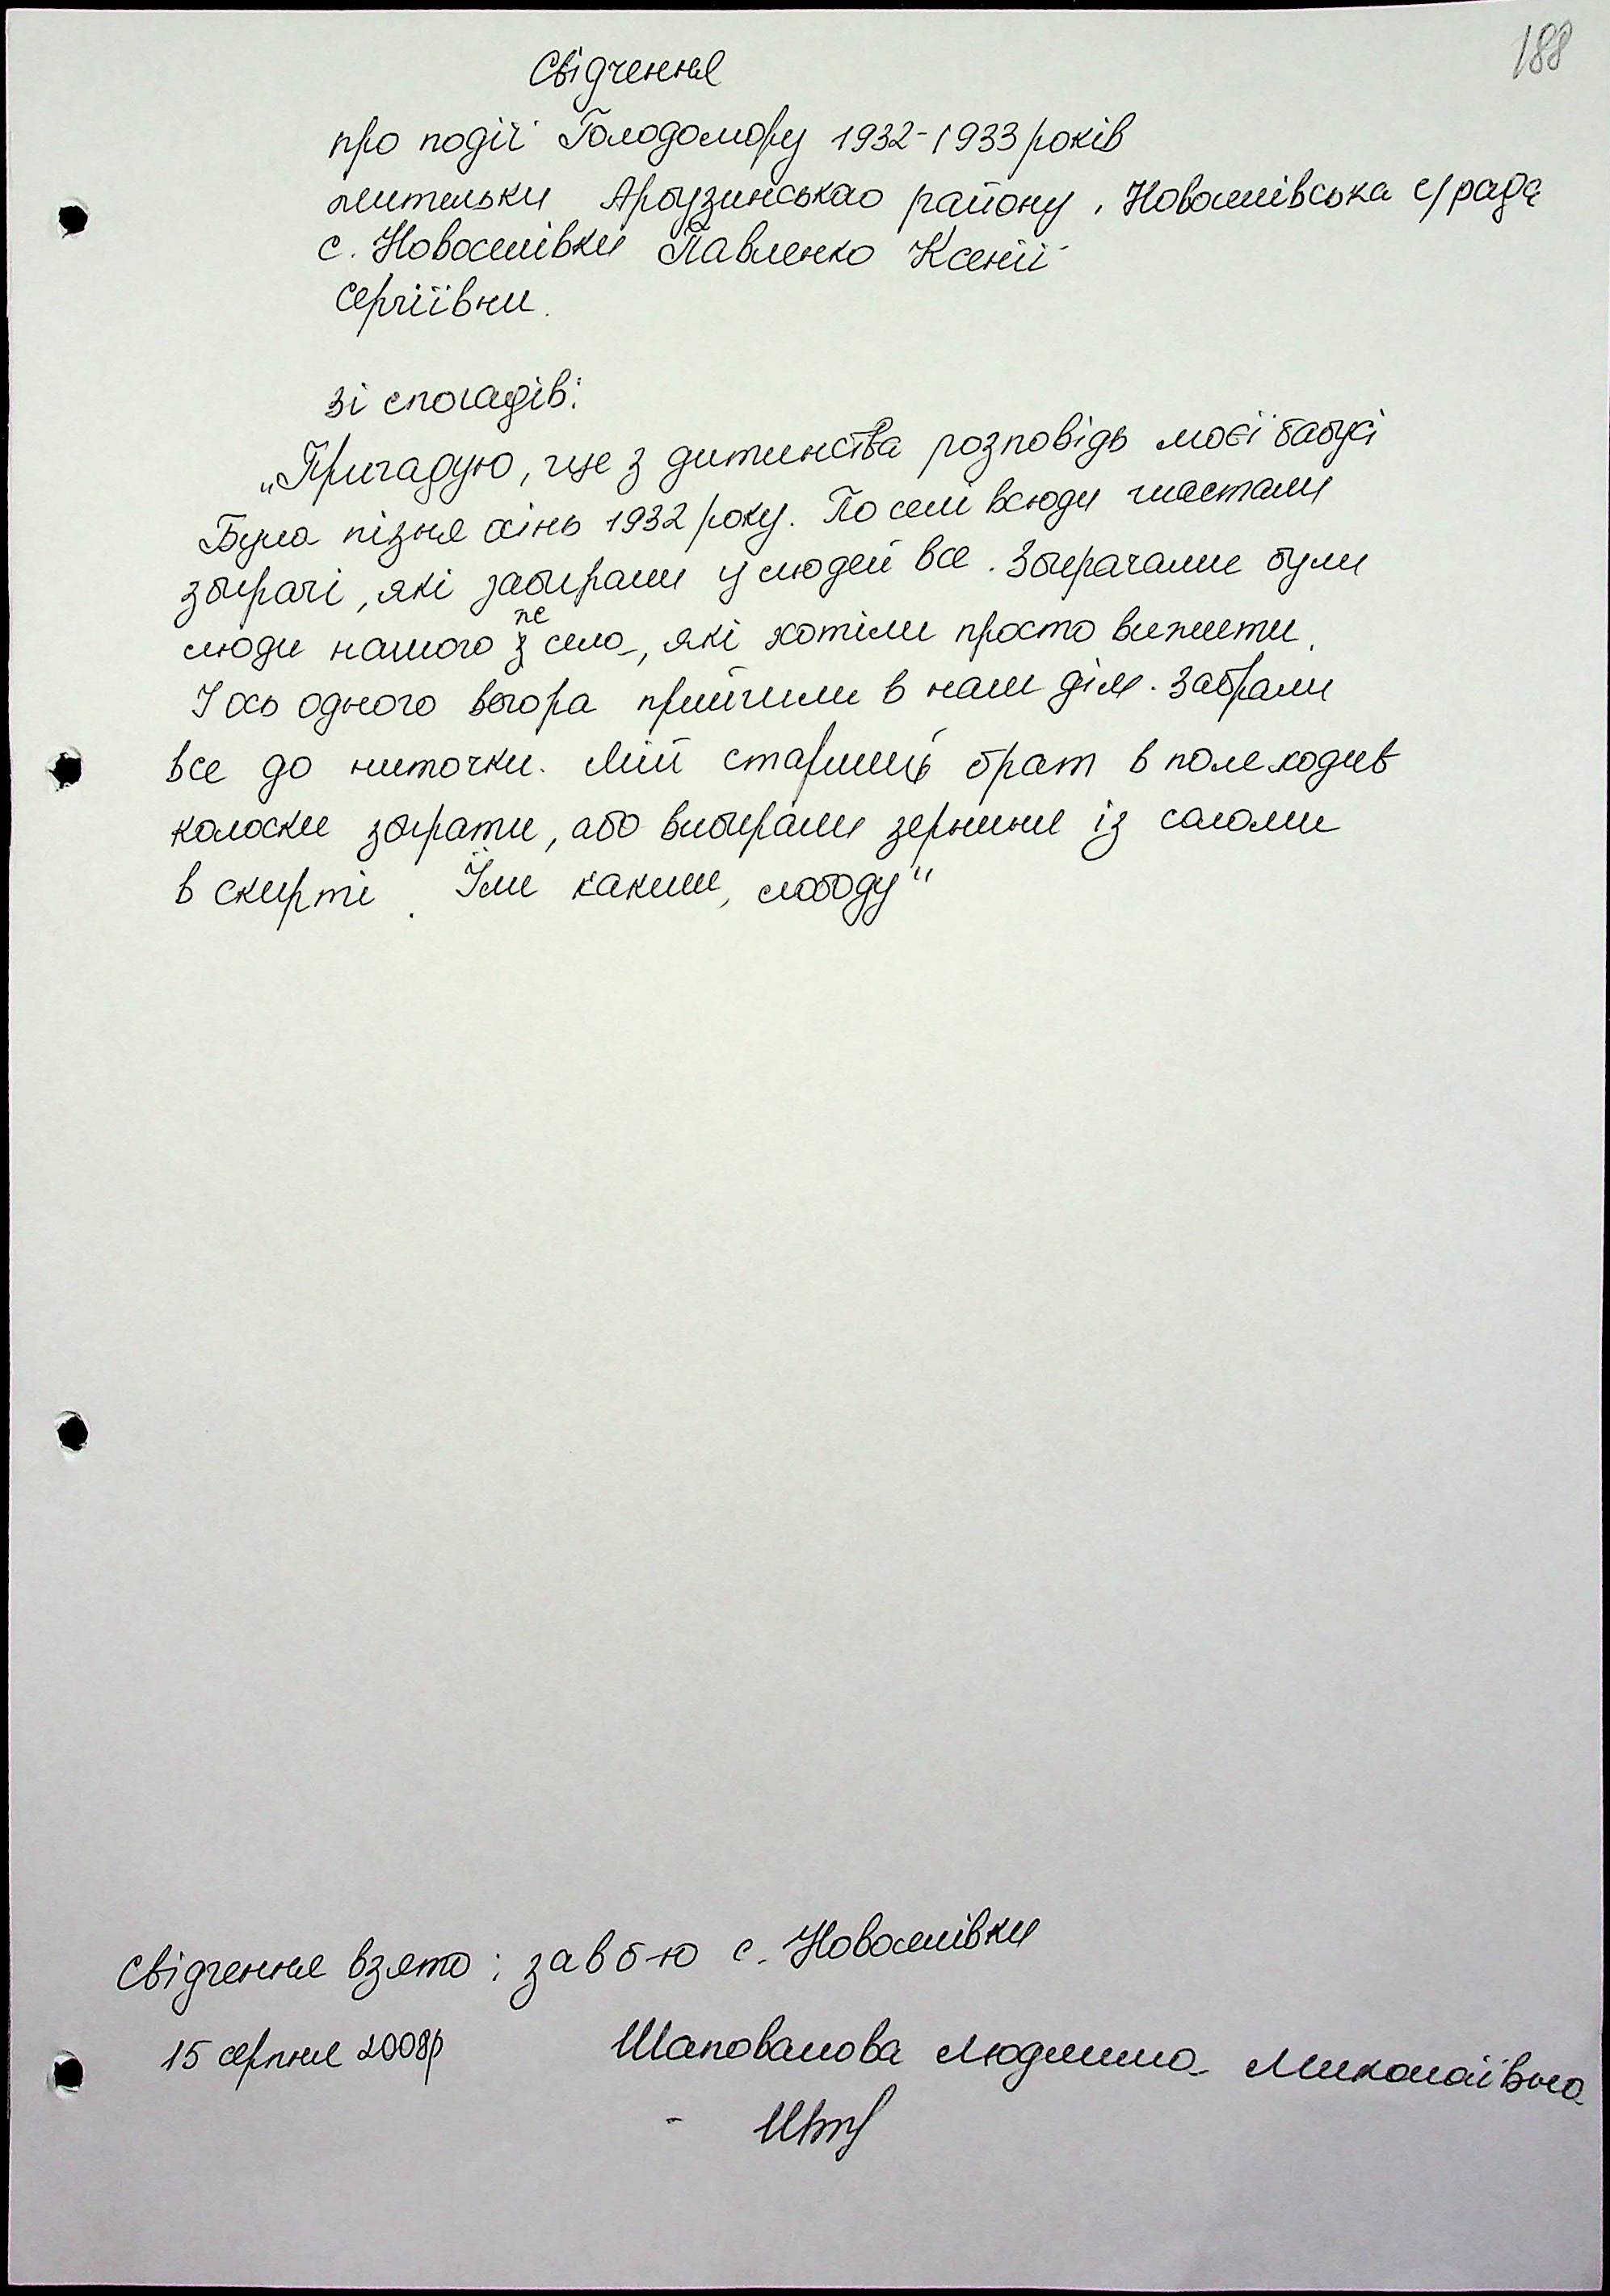 188
Свідчення
про події Голодомору 1932-1933 років
жительки Арбузинськао району, Новоселівська с/рада
с. Новоселівки Павленко Ксенії
Сергіївни.
зі спогадів:
„Пригадую, ще з дитинства розповідь моєї бабусі
Була пізня осінь 1932 року. По селі всюди шастали
збирачі, які забирали у людей все. Збирачами були
люди нашого же села, які хотіли просто вижити.
І ось одного вечора прийшли в наш дім. Забрали
все до ниточки. Мій старший брат в поле ходив
колоски збирати, або вибирали зернини із соломи
в скирті. Їли качиш, лободу"
Свідчення взято: зав б-ю с. Новоселівки
15 серпня 2008р Шаповалова Людмила Миколаївна